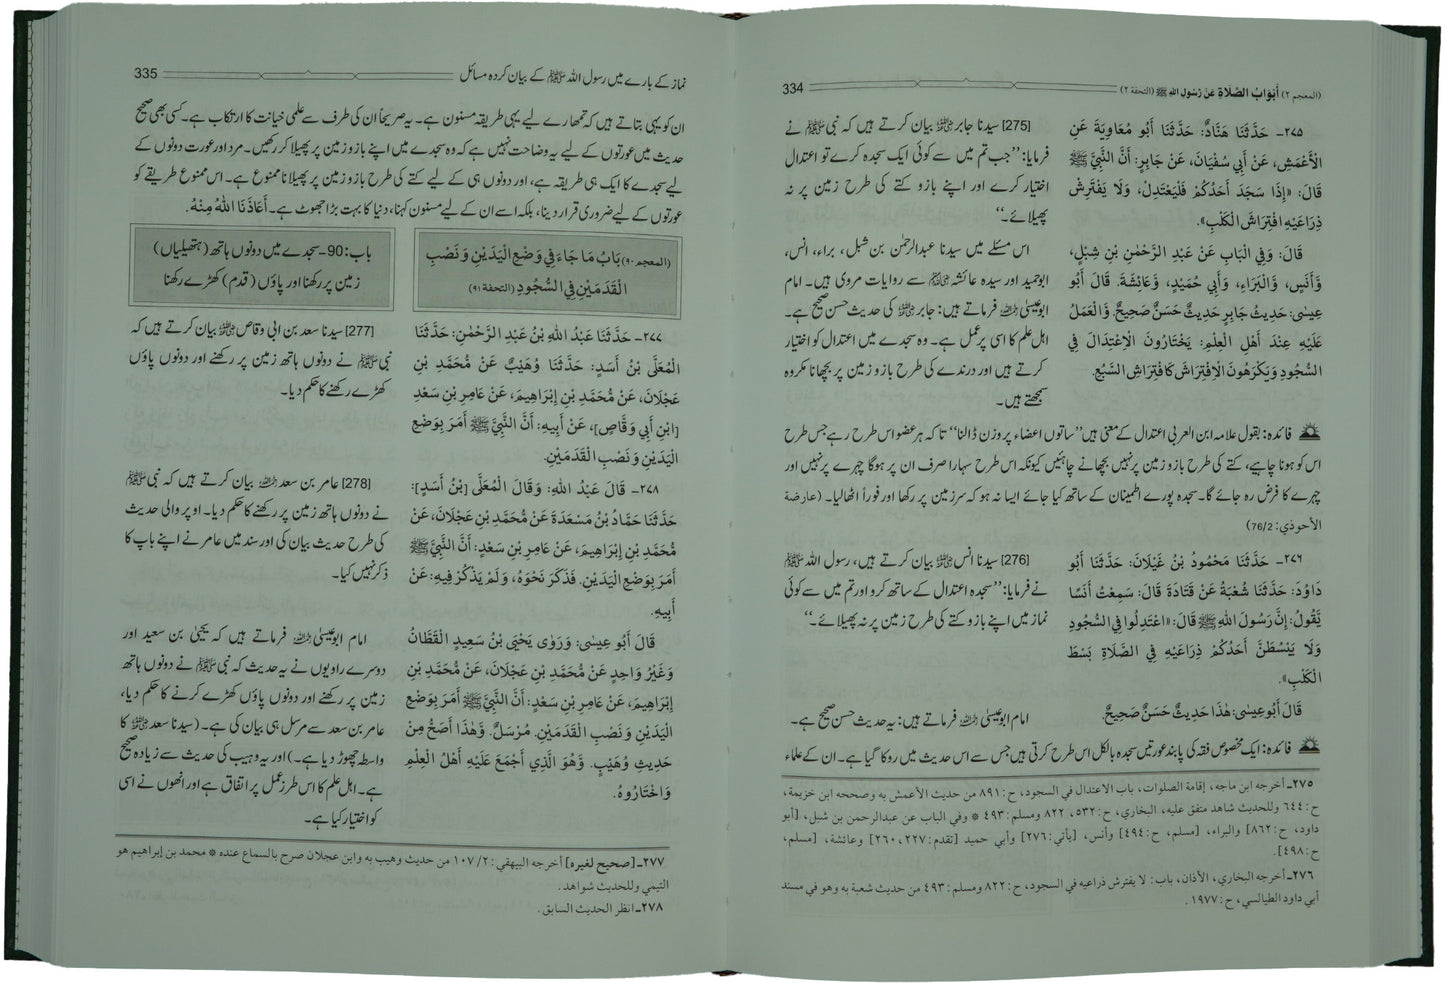 (المعجم ٢) أَبْوَابُ الصَّلَاةِ عَنْ رَسُولِ اللهِ ﷺ (التحفة ٢) 334
٢٧٥- حَدَّثَنَا هَنَّادٌ: حَدَّثَنَا أَبُو مُعَاوِيَةَ عَنِ
الْأَعْمَشِ، عَنْ أَبِي سُفْيَانَ، عَنْ جَابِرٍ: أَنَّ النَّبِيَّ ﷺ
قَالَ: «إِذَا سَجَدَ أَحَدُكُمْ فَلْيَعْتَدِلْ، وَلَا يَفْتَرِشْ
ذِرَاعَيْهِ افْتِرَاشَ الْكَلْبِ».
قَالَ: وَفِي الْبَابِ عَنْ عَبْدِ الرَّحْمٰنِ بْنِ شِبْلٍ،
وَّأَنَسٍ، وَالْبَرَاءِ، وَأَبِي حُمَيْدٍ، وَعَائِشَةَ. قَالَ أَبُو
عِيسٰى: حَدِيثُ جَابِرٍ حَدِيثٌ حَسَنٌ صَحِيحٌ. وَالْعَمَلُ
عَلَيْهِ عِنْدَ أَهْلِ الْعِلْمِ: يَخْتَارُونَ الِاعْتِدَالَ فِي
السُّجُودِ وَيَكْرَهُونَ الِافْتِرَاشَ كَافْتِرَاشِ السَّبُعِ.
[275] سیدنا جابر رضی اللہ عنہ بیان کرتے ہیں کہ نبی ﷺ نے
فرمایا: ”جب تم میں سے کوئی ایک سجدہ کرے تو اعتدال
اختیار کرے اور اپنے بازو کتے کی طرح زمین پر نہ
پھیلائے۔“
اس مسئلے میں سیدنا عبدالرحمٰن بن شبل، براء، انس،
ابوحمید اور سیدہ عائشہ رضی اللہ عنہم سے روایات مروی ہیں۔ امام
ابوعیسیٰ رحمہ اللہ فرماتے ہیں: جابر رضی اللہ عنہ کی حدیث حسن صحیح ہے۔
اہل علم کا اسی پر عمل ہے۔ وہ سجدے میں اعتدال کو اختیار
کرتے ہیں اور درندے کی طرح بازو زمین پر بچھانا مکروہ
سمجھتے ہیں۔
فائدہ: بقول علامہ ابن العربی اعتدال کے معنی ہیں ”ساتوں اعضاء پر وزن ڈالنا“ تاکہ ہر عضو اس طرح رہے جس طرح
اس کو ہونا چاہیے، کتے کی طرح بازو زمین پر نہیں بچھانے چاہئیں کیونکہ اس طرح سہارا صرف ان پر ہوگا چہرے پر نہیں اور
چہرے کا فرض رہ جائے گا۔ سجدہ پورے اطمینان کے ساتھ کیا جائے ایسا نہ ہو کہ سر زمین پر رکھا اور فوراً اٹھالیا۔ (عارضة
الأحوذي: 76/2)
٢٧٦- حَدَّثَنَا مَحْمُودُ بْنُ غَيْلَانَ: حَدَّثَنَا أَبُو
دَاوُدَ: حَدَّثَنَا شُعْبَةُ عَنْ قَتَادَةَ قَالَ: سَمِعْتُ أَنَسًا
يَّقُولُ: إِنَّ رَسُولَ اللهِ ﷺ قَالَ: «اعْتَدِلُوا فِي السُّجُودِ
وَلَا يَبْسُطَنَّ أَحَدُكُمْ ذِرَاعَيْهِ فِي الصَّلَاةِ بَسْطَ
الْكَلْبِ».
قَالَ أَبُو عِيسٰى: هٰذَا حَدِيثٌ حَسَنٌ صَحِيحٌ.
[276] سیدنا انس رضی اللہ عنہ بیان کرتے ہیں، رسول اللہ ﷺ
نے فرمایا: ”سجدہ اعتدال کے ساتھ کرو اور تم میں سے کوئی
نماز میں اپنے بازو کتے کی طرح زمین پر نہ پھیلائے۔“
امام ابوعیسیٰ رحمہ اللہ فرماتے ہیں: یہ حدیث حسن صحیح ہے۔
فائدہ: ایک مخصوص فقہ کی پابند عورتیں سجدہ بالکل اس طرح کرتی ہیں جس سے اس حدیث میں روکا گیا ہے۔ ان کے علماء
٢٧٥- أخرجه ابن ماجه، إقامة الصلوات، باب الاعتدال في السجود، ح: ٨٩١ من حديث الأعمش به وصححه ابن خزيمة،
ح: ٦٤٤ وللحديث شاهد متفق عليه، البخاري، ح: ٥٣٢، ٨٢٢ ومسلم: ٤٩٣ * وفي الباب عن عبدالرحمن بن شبل، [أبو
داود، ح: ٨٦٢] والبراء، [مسلم، ح: ٤٩٤] وأنس، [يأتي: ٢٧٦] وأبي حميد [تقدم: ٢٢٧، ٢٦٠] وعائشة، [مسلم،
ح: ٤٩٨].
٢٧٦- أخرجه البخاري، الأذان، باب: لا يفترش ذراعيه في السجود، ح: ٨٢٢ ومسلم: ٤٩٣ من حديث شعبة به وهو في مسند
أبي داود الطيالسي، ح: ١٩٧٧.
نماز کے بارے میں رسول اللہ ﷺ کے بیان کردہ مسائل 335
ان کو یہی بتاتے ہیں کہ تمہارے لیے یہی طریقہ مسنون ہے۔ یہ صریحاً ان کی طرف سے علمی خیانت کا ارتکاب ہے۔ کسی بھی صحیح
حدیث میں عورتوں کے لیے یہ وضاحت نہیں ہے کہ وہ سجدے میں اپنے بازو زمین پر پھیلا کر رکھیں۔ مرد اور عورت دونوں کے
لیے سجدے کا ایک ہی طریقہ ہے، اور دونوں ہی کے لیے کتے کی طرح بازو زمین پر پھیلانا ممنوع ہے۔ اس ممنوع طریقے کو
عورتوں کے لیے ضروری قرار دینا، بلکہ اسے ان کے لیے مسنون کہنا، دنیا کا بہت بڑا جھوٹ ہے۔ أَعَاذَنَا اللهُ مِنْهُ.
(المعجم ٩٠) بَابُ مَا جَاءَ فِي وَضْعِ الْيَدَيْنِ وَنَصْبِ
الْقَدَمَيْنِ فِي السُّجُودِ (التحفة ٩١)
باب: 90- سجدے میں دونوں ہاتھ (ہتھیلیاں)
زمین پر رکھنا اور پاؤں (قدم) کھڑے رکھنا
٢٧٧- حَدَّثَنَا عَبْدُ اللهِ بْنُ عَبْدِ الرَّحْمٰنِ: حَدَّثَنَا
الْمُعَلَّى بْنُ أَسَدٍ: حَدَّثَنَا وُهَيْبٌ عَنْ مُّحَمَّدِ بْنِ
عَجْلَانَ، عَنْ مُّحَمَّدِ بْنِ إِبْرَاهِيمَ، عَنْ عَامِرِ بْنِ سَعْدِ
[ابْنِ أَبِي وَقَّاصٍ]، عَنْ أَبِيهِ: أَنَّ النَّبِيَّ ﷺ أَمَرَ بِوَضْعِ
الْيَدَيْنِ وَنَصْبِ الْقَدَمَيْنِ.
[277] سیدنا سعد بن ابی وقاص رضی اللہ عنہ بیان کرتے ہیں کہ
نبی ﷺ نے دونوں ہاتھ زمین پر رکھنے اور دونوں پاؤں
کھڑے رکھنے کا حکم دیا۔
٢٧٨- قَالَ عَبْدُ اللهِ: وَقَالَ الْمُعَلَّى [بْنُ أَسَدٍ]:
حَدَّثَنَا حَمَّادُ بْنُ مَسْعَدَةَ عَنْ مُّحَمَّدِ بْنِ عَجْلَانَ، عَنْ
مُّحَمَّدِ بْنِ إِبْرَاهِيمَ، عَنْ عَامِرِ بْنِ سَعْدٍ: أَنَّ النَّبِيَّ ﷺ
أَمَرَ بِوَضْعِ الْيَدَيْنِ. فَذَكَرَ نَحْوَهُ، وَلَمْ يَذْكُرْ فِيهِ: عَنْ
أَبِيهِ.
قَالَ أَبُو عِيسٰى: وَرَوٰى يَحْيَى بْنُ سَعِيدٍ الْقَطَّانُ
وَغَيْرُ وَاحِدٍ عَنْ مُّحَمَّدِ بْنِ عَجْلَانَ، عَنْ مُّحَمَّدِ بْنِ
إِبْرَاهِيمَ، عَنْ عَامِرِ بْنِ سَعْدٍ: أَنَّ النَّبِيَّ ﷺ أَمَرَ بِوَضْعِ
الْيَدَيْنِ وَنَصْبِ الْقَدَمَيْنِ. مُرْسَلٌ. وَّهٰذَا أَصَحُّ مِنْ
حَدِيثِ وُهَيْبٍ. وَّهُوَ الَّذِي أَجْمَعَ عَلَيْهِ أَهْلُ الْعِلْمِ
وَاخْتَارُوهُ.
[278] عامر بن سعد رحمہ اللہ بیان کرتے ہیں کہ نبی ﷺ
نے دونوں ہاتھ زمین پر رکھنے کا حکم دیا۔ اوپر والی حدیث
کی طرح حدیث بیان کی اور سند میں عامر نے اپنے باپ کا
ذکر نہیں کیا۔
امام ابوعیسیٰ رحمہ اللہ فرماتے ہیں کہ یحییٰ بن سعید اور
دوسرے راویوں نے یہ حدیث کہ نبی ﷺ نے دونوں ہاتھ
زمین پر رکھنے اور دونوں پاؤں کھڑے کرنے کا حکم دیا،
عامر بن سعد سے مرسل ہی بیان کی ہے۔ (سیدنا سعد رضی اللہ عنہ کا
واسطہ چھوڑ دیا ہے۔) اور یہ وہیب کی حدیث سے زیادہ صحیح
ہے۔ اہل علم کا اس طرز عمل پر اتفاق ہے اور انھوں نے اسی
کو اختیار کیا ہے۔
٢٧٧- [صحيح لغيره] أخرجه البيهقي: ٢/ ١٠٧ من حديث وهيب به وابن عجلان صرح بالسماع عنده * محمد بن إبراهيم هو
التيمي وللحديث شواهد.
٢٧٨- انظر الحديث السابق.